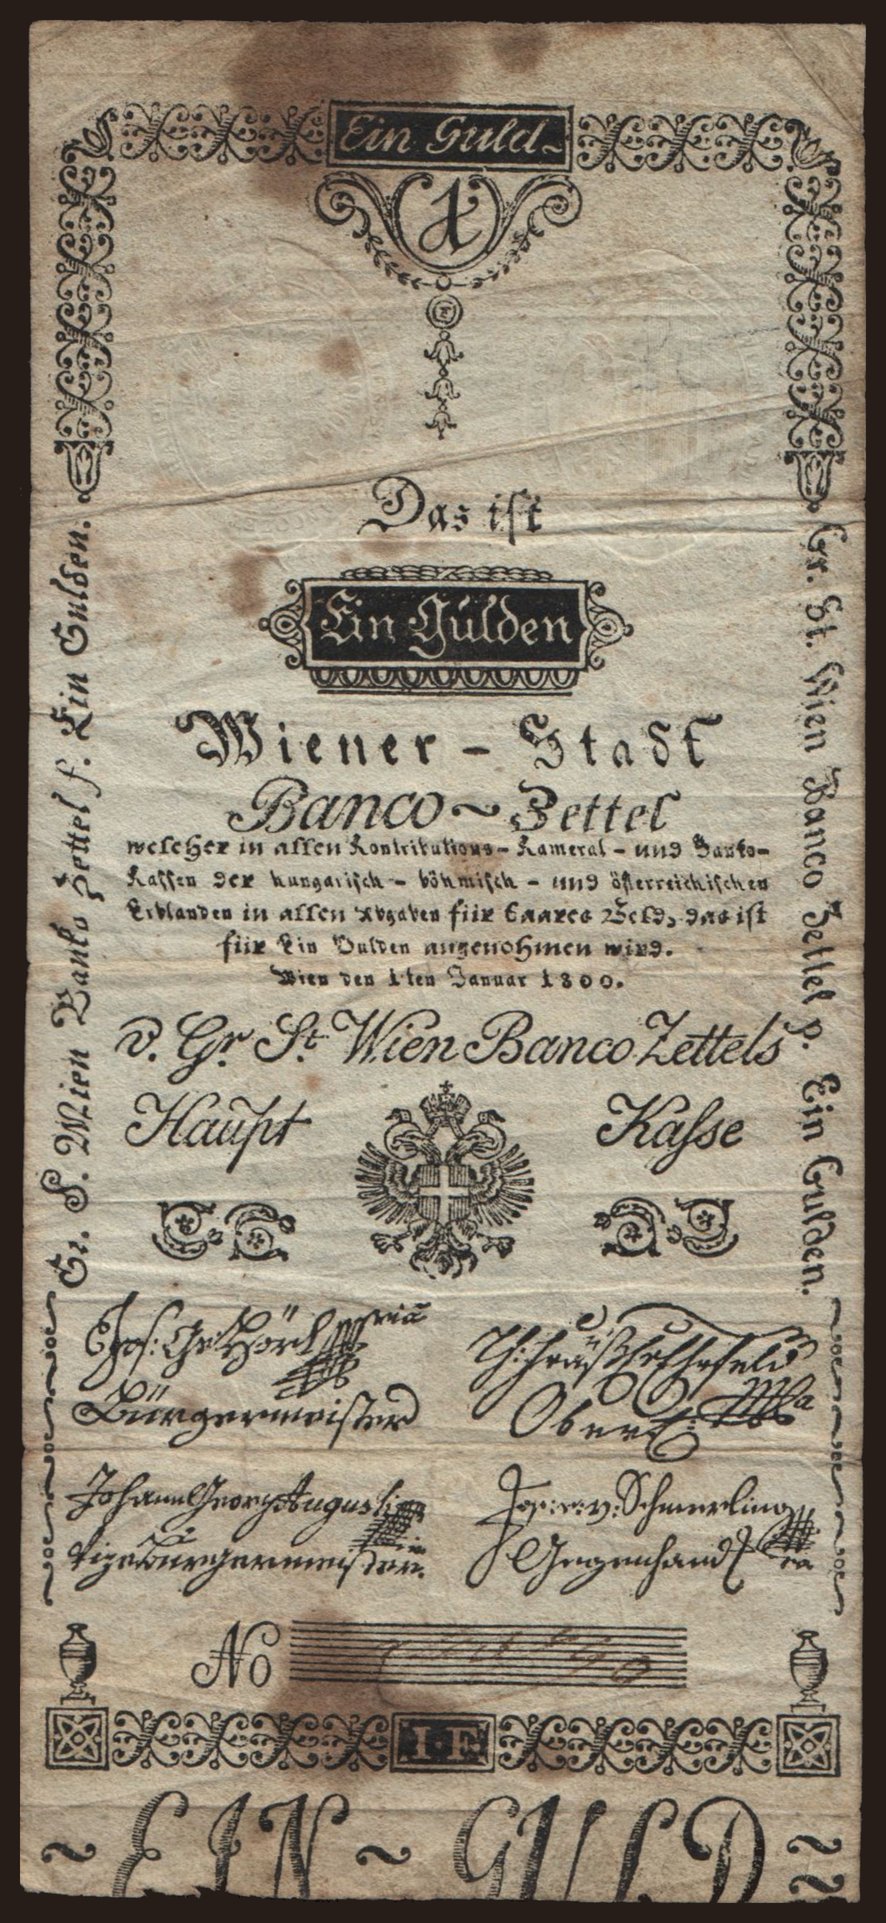 Ein Guld~
1
Das ist
Ein Gulden
Wiener - Stadt
Banco ~ Zettel
welcher in allen Kontributions - Kameral - und Banko-
Kassen der hungarisch - böhmisch - und österreichischen
Erblanden in allen Abgaben für baares Geld, das ist
für Ein Gulden angenohmen wird.
Wien den 1ten Januar 1800.
v. Gr. St. Wien Banco Zettels
Haupt Kasse
Gr. S. Wien Banko Zettel f. Ein Gulden.
Gr. St. Wien Banco Zettel p. Ein Gulden.
Jos: Ge: Hörl
Bürgermeister
Ober
Johann Georg Augusti
Vizebürgermeister.
Jos: v: Schmerling
Gegenhand
No
1·F
~ EIN ~ GULD